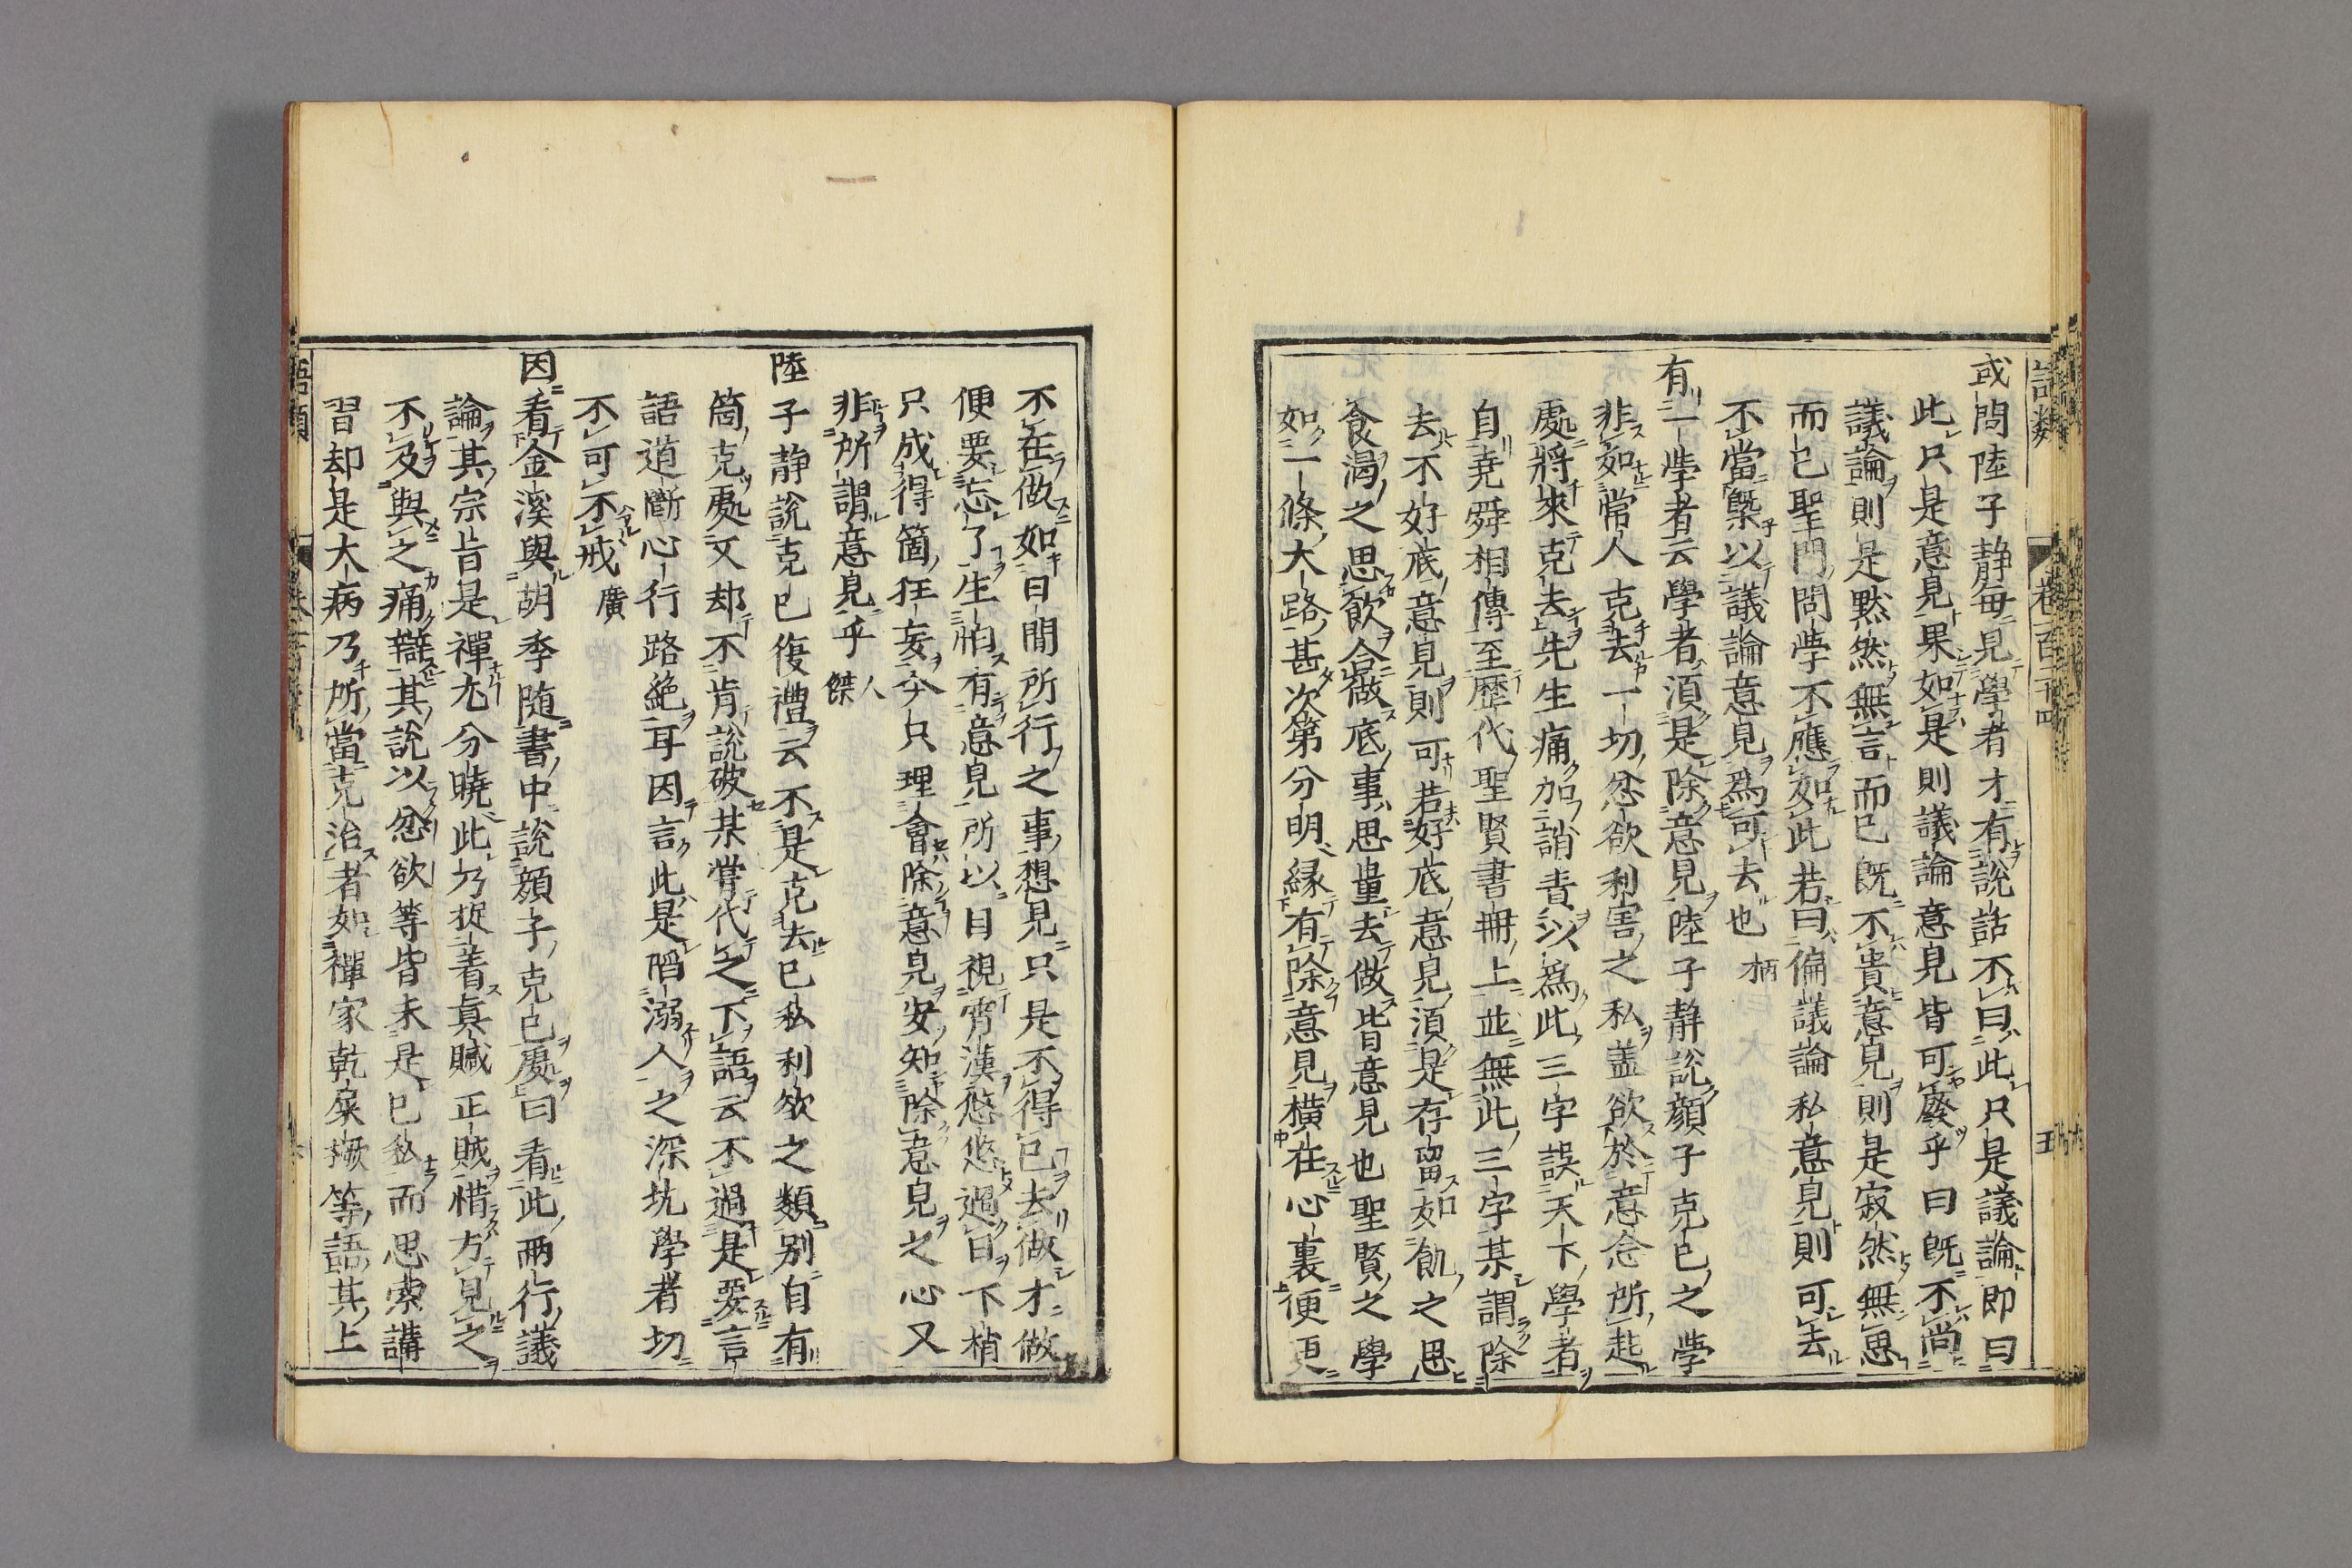 語類 卷一百二十四 五
或問陸子靜每見學者才有說話不曰此只是議論即曰
此只是意見果如是則議論意見皆可廢乎曰既不尚
議論則是默然無言而已既不貴意見則是寂然無思
而已聖門問學不應如此若曰偏議論私意見則可去
不當槩以議論意見為可去也 柄
有一學者云學者須是除意見陸子靜說顏子克己之學
非如常人克去一切忿欲利害之私蓋欲於意念所起
處將來克去先生痛加誚責以為此三字誤天下學者
自堯舜相傳至歷代聖賢書冊上並無此三字某謂除
去不好底意見則可若好底意見須是存留如飢之思
食渴之思飲合做底事思量去做皆意見也聖賢之學
如一條大路甚次第分明緣有除意見橫在心裏便更
不在做如日間所行之事想見只是不得已去做才做
便要忘了生怕有意見所以目視霄漢悠悠過日下梢
只成得箇狂妄今只理會除意見安知除意見之心又
非所謂意見乎 人傑
陸子靜說克己復禮云不是克去己私利欲之類別自有
箇克處又却不肯說破某嘗代之下語云不過是要言
語道斷心行路絕耳因言此是陷溺人之深坑學者切
不可不戒 廣
因看金溪與胡季随書中說顏子克己處曰看此兩行議
論其宗旨是禪尤分曉此乃捉著真贓正賊惜方見之
不及與之痛辯其說以忿欲等皆未是己私而思索講
習却是大病乃所當克治者如禪家乾屎橛等語其上
語類